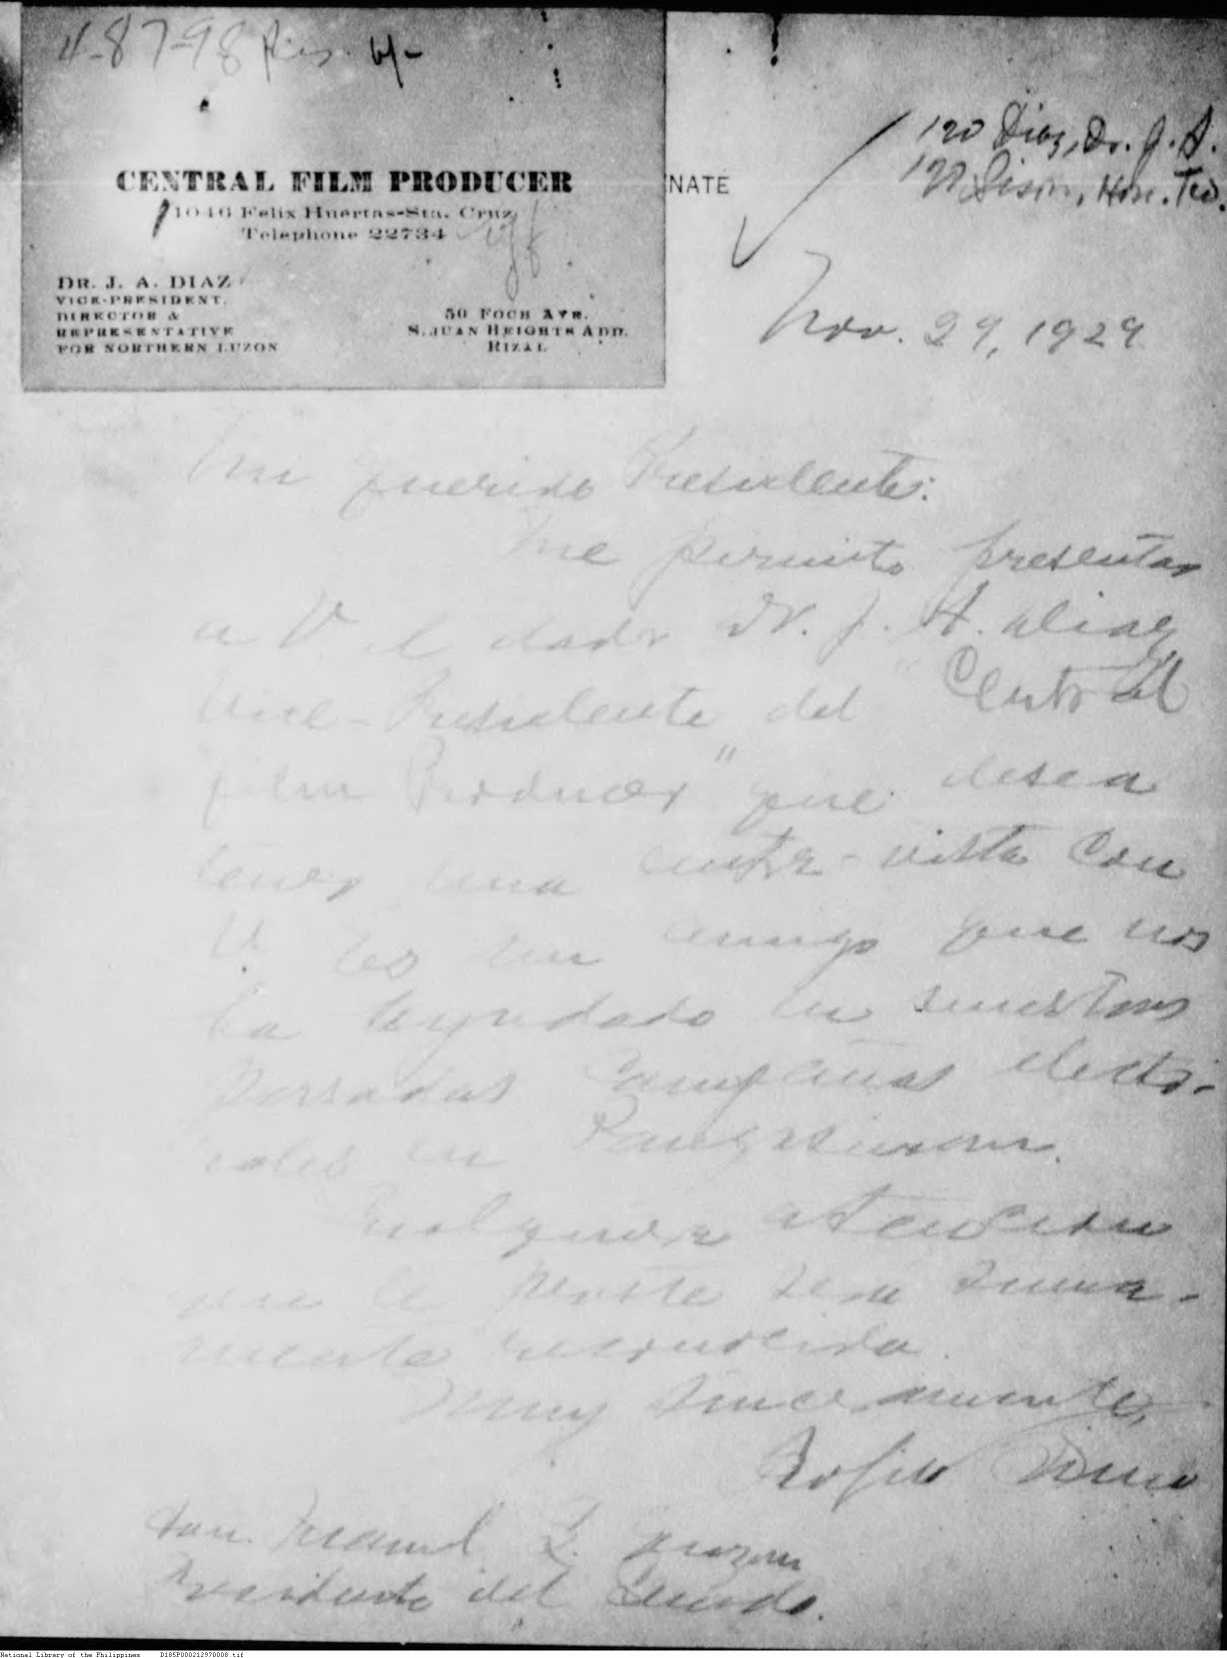 4-87-98
CENTRAL FILM PRODUCER
1046 Felix Huertas-Sta. Cruz
Telephone 22734
DR. J. A. DIAZ
VICE-PRESIDENT,
DIRECTOR &
REPRESENTATIVE
FOR NORTHERN LUZON
50 FOCH AVE.
S. JUAN HEIGHTS ADD.
RIZAL
NATE
120 Diaz, Dr. J. A.
Sison, Hon. Teo.
Nov. 29, 1929
Mi querido Presidente:
Me permito presentar
a V. el dador Dr. J. A. Diaz,
Vice-Presidente del "Central
Film Producer" que desea
tener una entre-vista con
V. Es un amigo que nos
ha ayudado en nuestras
pasadas campañas electo-
rales en Pangasinan.
Cualquier atencion
que le preste sera suma-
mente reconocida.
Muy sinceramente,
Sison
Hon. Manuel L. Quezon
Presidente del Senado.
National Library of the Philippines D185P000212970008.tif